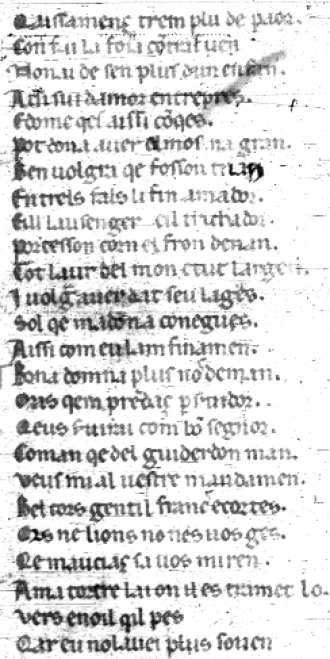 Quissamenz trem plu de paor.
Con fai la foilla contral uen
Non ai de sen plus dun enfan.
Aissi sui damor entrepres.
E dome qes aissi coqes.
Pot dona auer almosna gran.
Ben uolgra qe fosson trian
Entrels fals li fin amador.
Eill lausenger eil trichador.
Portesson corn el fron denan.
Tot laur del mon e tut largen
I uolgrauer dat seu lages.
Sol qe madona conegues.
Aissi com eu lam finamen.
Bona domna plus no deman.
Mas qem prendaz per seruidor.
Qeus seruirai com bo segnor.
Coman qe del guiderdon man.
Veus mi al uestre mandamen.
Bel cors gentil franc e cortes.
Ors ne lions no nes uos ges.
Qe mauciaz sa uos mi ren.
A ma tortre lai on il es tramet lo.
vers e no il qil pes
Qar eu no la uei plus souen